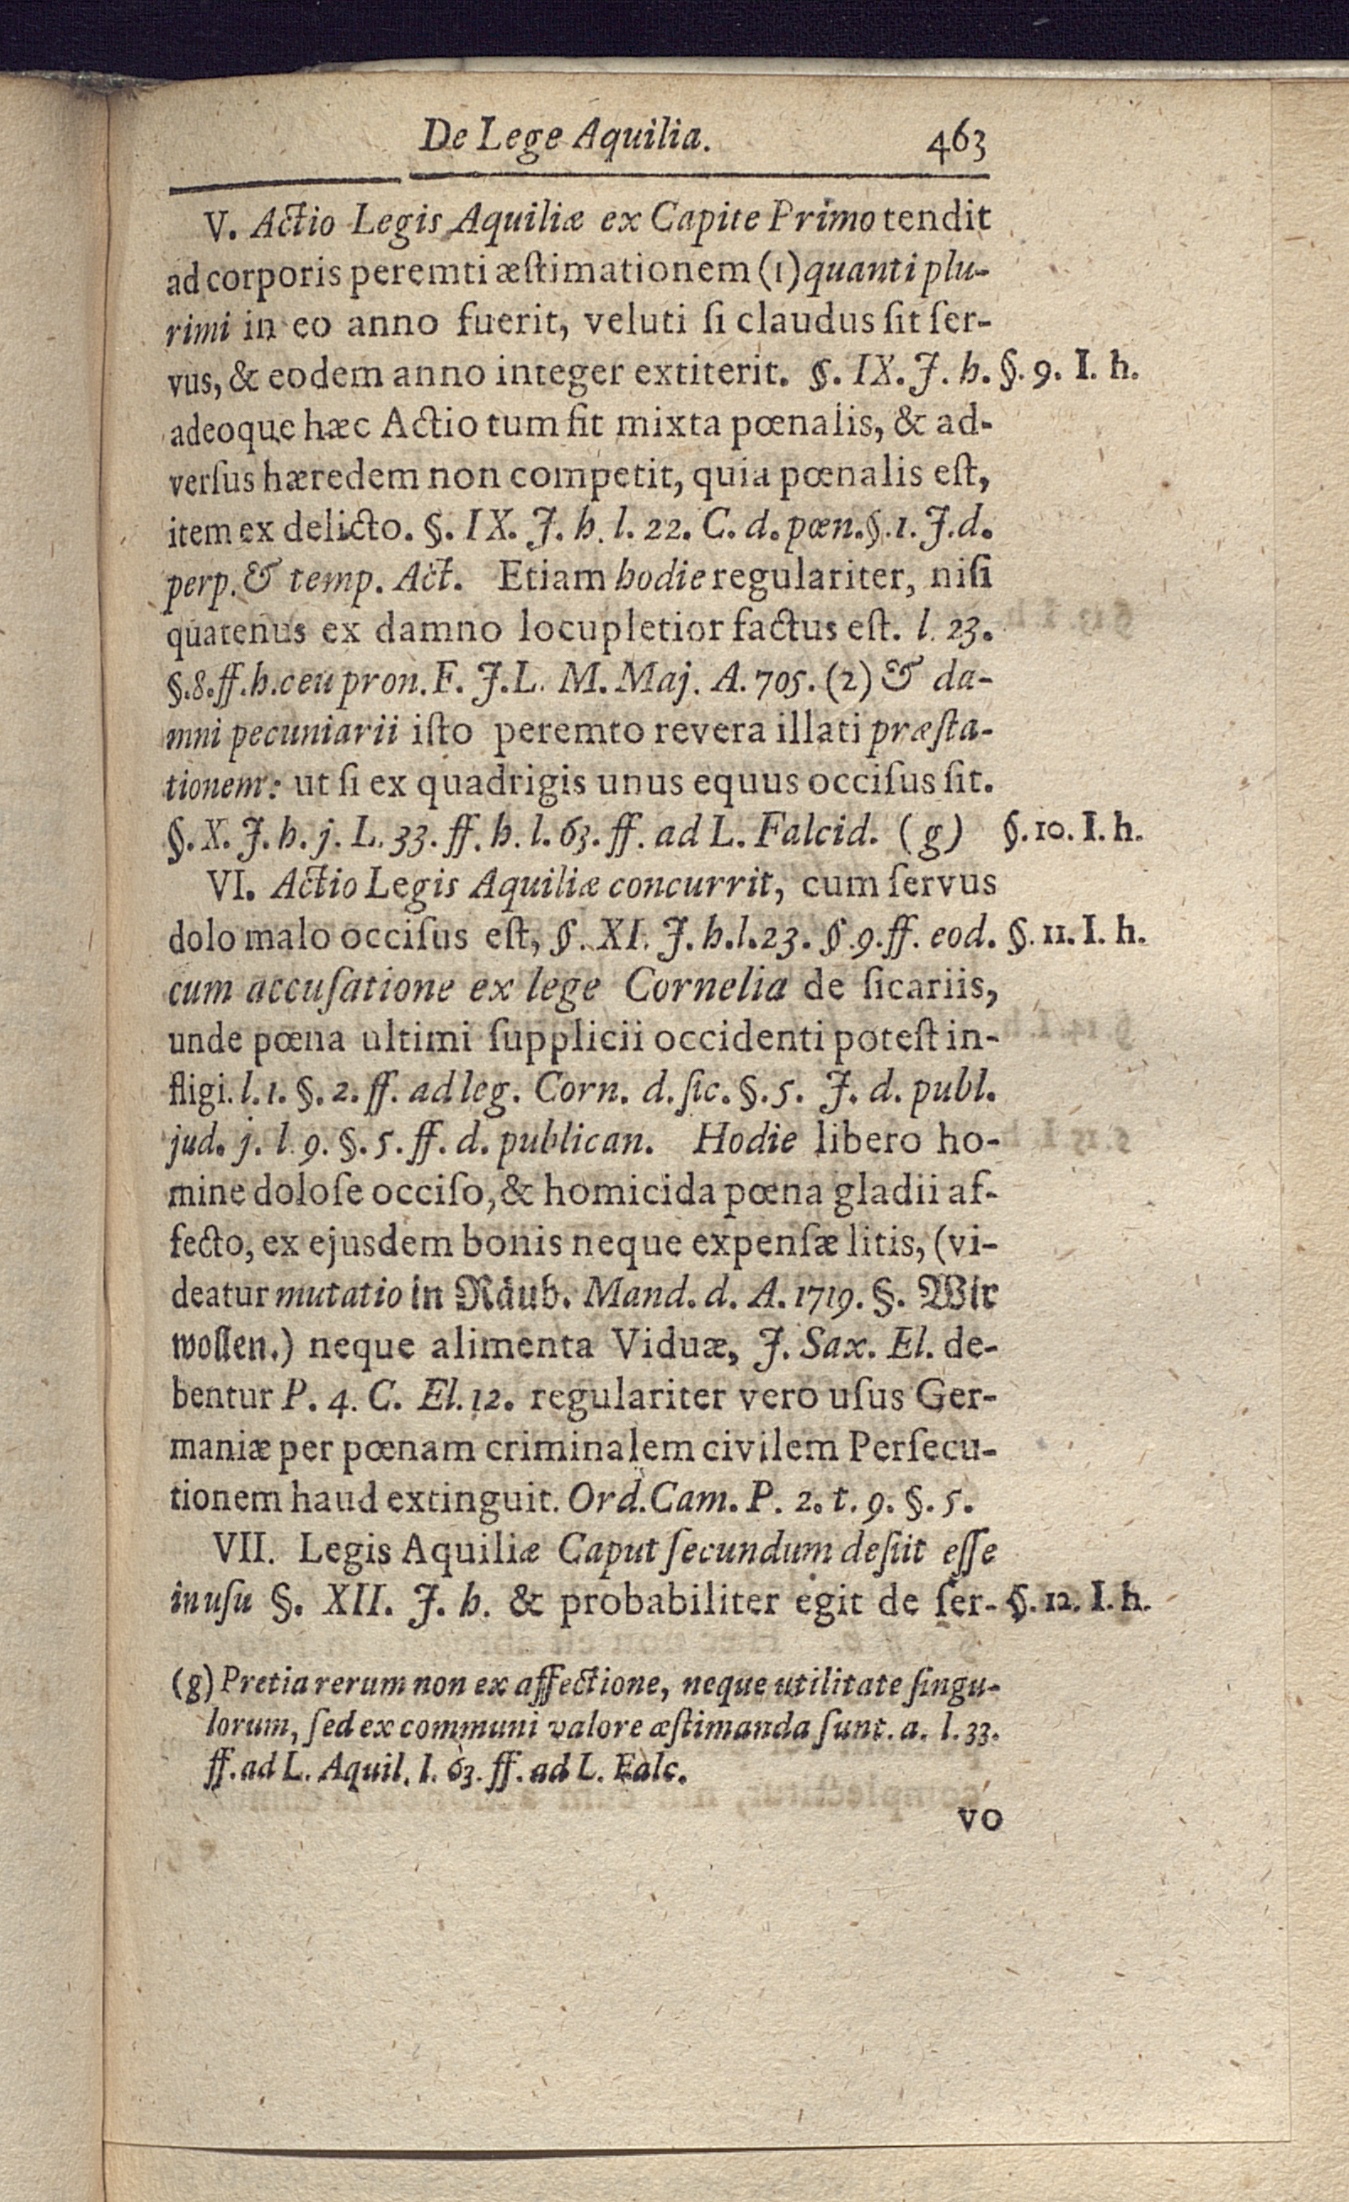 De Lege Aquilia. 463
V. Actio Legis Aquiliæ ex Capite Primo tendit
ad corporis peremti æſtimationem (1) quanti plu-
rimi in eo anno fuerit, veluti ſi claudus ſit ſer-
vus, & eodem anno integer extiterit. §. IX. J. h. §. 9. I. h.
adeoque hæc Actio tum ſit mixta pœnalis, & ad-
verſus hæredem non competit, quia pœnalis eſt,
item ex delicto. §. IX. J. h. l. 22. C. d. pœn. §. 1. J. d.
perp. & temp. Act. Etiam hodie regulariter, niſi
quatenus ex damno locupletior factus eſt. l. 23.
§. 8. ff. h. ceu pron. F. J. L. M. Maj. A. 705. (2) & da-
mni pecuniarii iſto peremto revera illati præſta-
tionem: ut ſi ex quadrigis unus equus occiſus ſit.
§. X. J. h. j. L. 33. ff. h. l. 63. ff. ad L. Falcid. (g) §. 10. I. h.
VI. Actio Legis Aquiliæ concurrit, cum ſervus
dolo malo occiſus eſt, §. XI. J. h. l. 23. §. 9. ff. eod. §. 11. I. h.
cum accuſatione ex lege Cornelia de ſicariis,
unde pœna ultimi ſupplicii occidenti poteſt in-
fligi. l. 1. §. 2. ff. ad leg. Corn. d. ſic. §. 5. J. d. publ.
jud. j. l. 9. §. 5. ff. d. publican. Hodie libero ho-
mine doloſe occiſo, & homicida pœna gladii af-
fecto, ex ejusdem bonis neque expenſæ litis, (vi-
deatur mutatio in Räub. Mand. d. A. 1719. §. Wir
wollen.) neque alimenta Viduæ, J. Sax. El. de-
bentur P. 4. C. El. 12. regulariter vero uſus Ger-
maniæ per pœnam criminalem civilem Perſecu-
tionem haud extinguit. Ord. Cam. P. 2. t. 9. §. 5.
VII. Legis Aquiliæ Caput ſecundum deſiit eſſe
in uſu §. XII. J. h. & probabiliter egit de ſer- §. 12. I. h.
(g) Pretia rerum non ex affectione, neque utilitate ſingu-
lorum, ſed ex communi valore æſtimanda ſunt. a. l. 33.
ff. ad L. Aquil. l. 63. ff. ad L. Falc.
vo